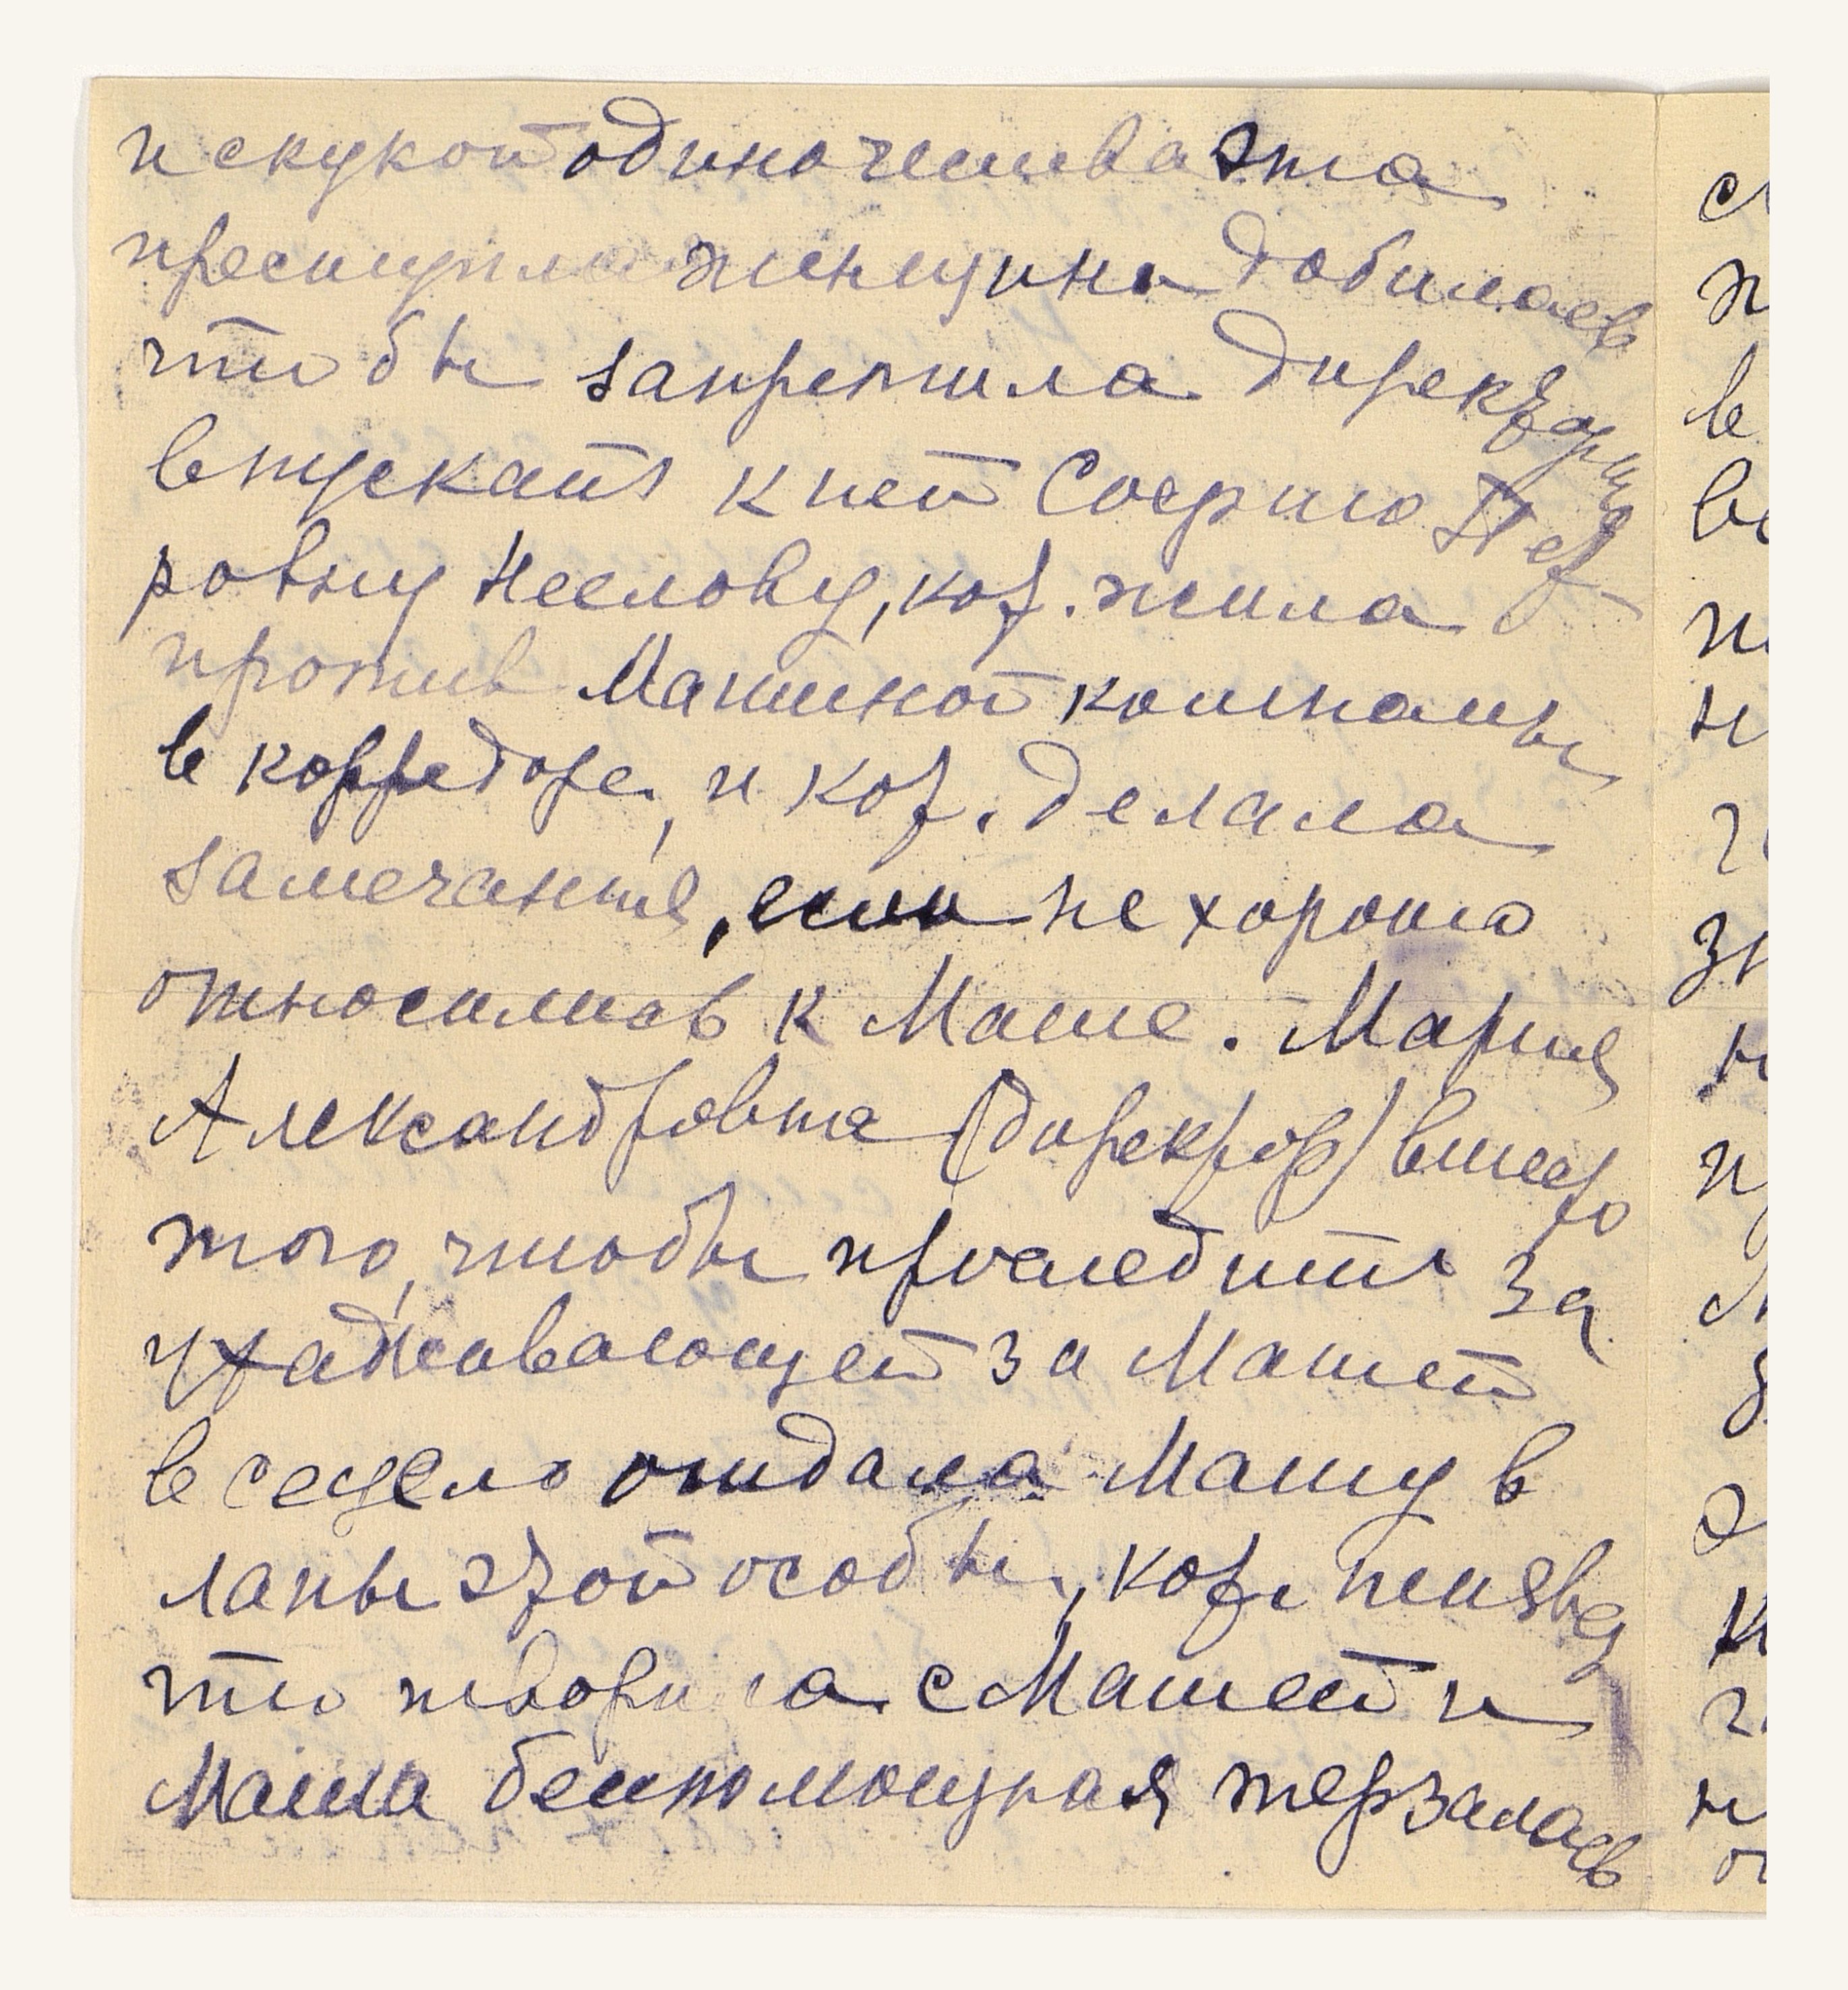 и скукой одиночества эта
преступная женщина добилась
чтобы запретила директорша
впускать к ней Софию Пет-
ровну Неелову, кот. жила
против Машиной комнаты
в корредоре, и кот. делала
замечания, если не хорошо
относились к Маше. Мария
Александровна (директор) вместо
того, чтобы проследить за
ухаживающей за Машей
всецело отдала Машу в
лапы этой особы, кот.
что творила с Машей и
Маша беспомощная терзалась